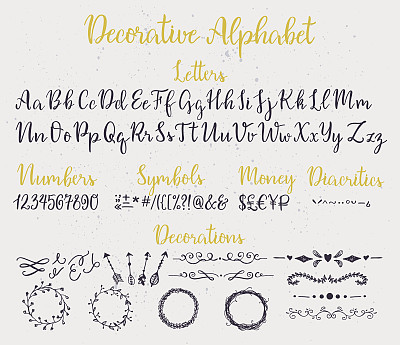 Decorative Alphabet
Letters
Aa Bb Cc Dd Ee Ff Gg Hh Ii Jj Kk Ll Mm
Nn Oo Pp Qq Rr Ss Tt Uu Vv Ww Xx Yy Zz
Numbers Symbols Money Diacritics
1234567890 $£€¥₽
Decorations